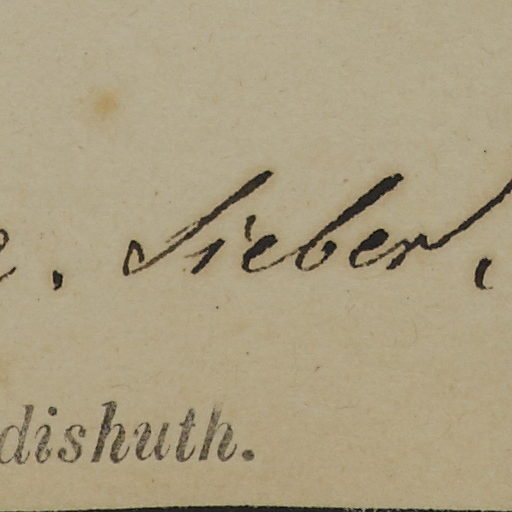 . Sieber.
dishuth.